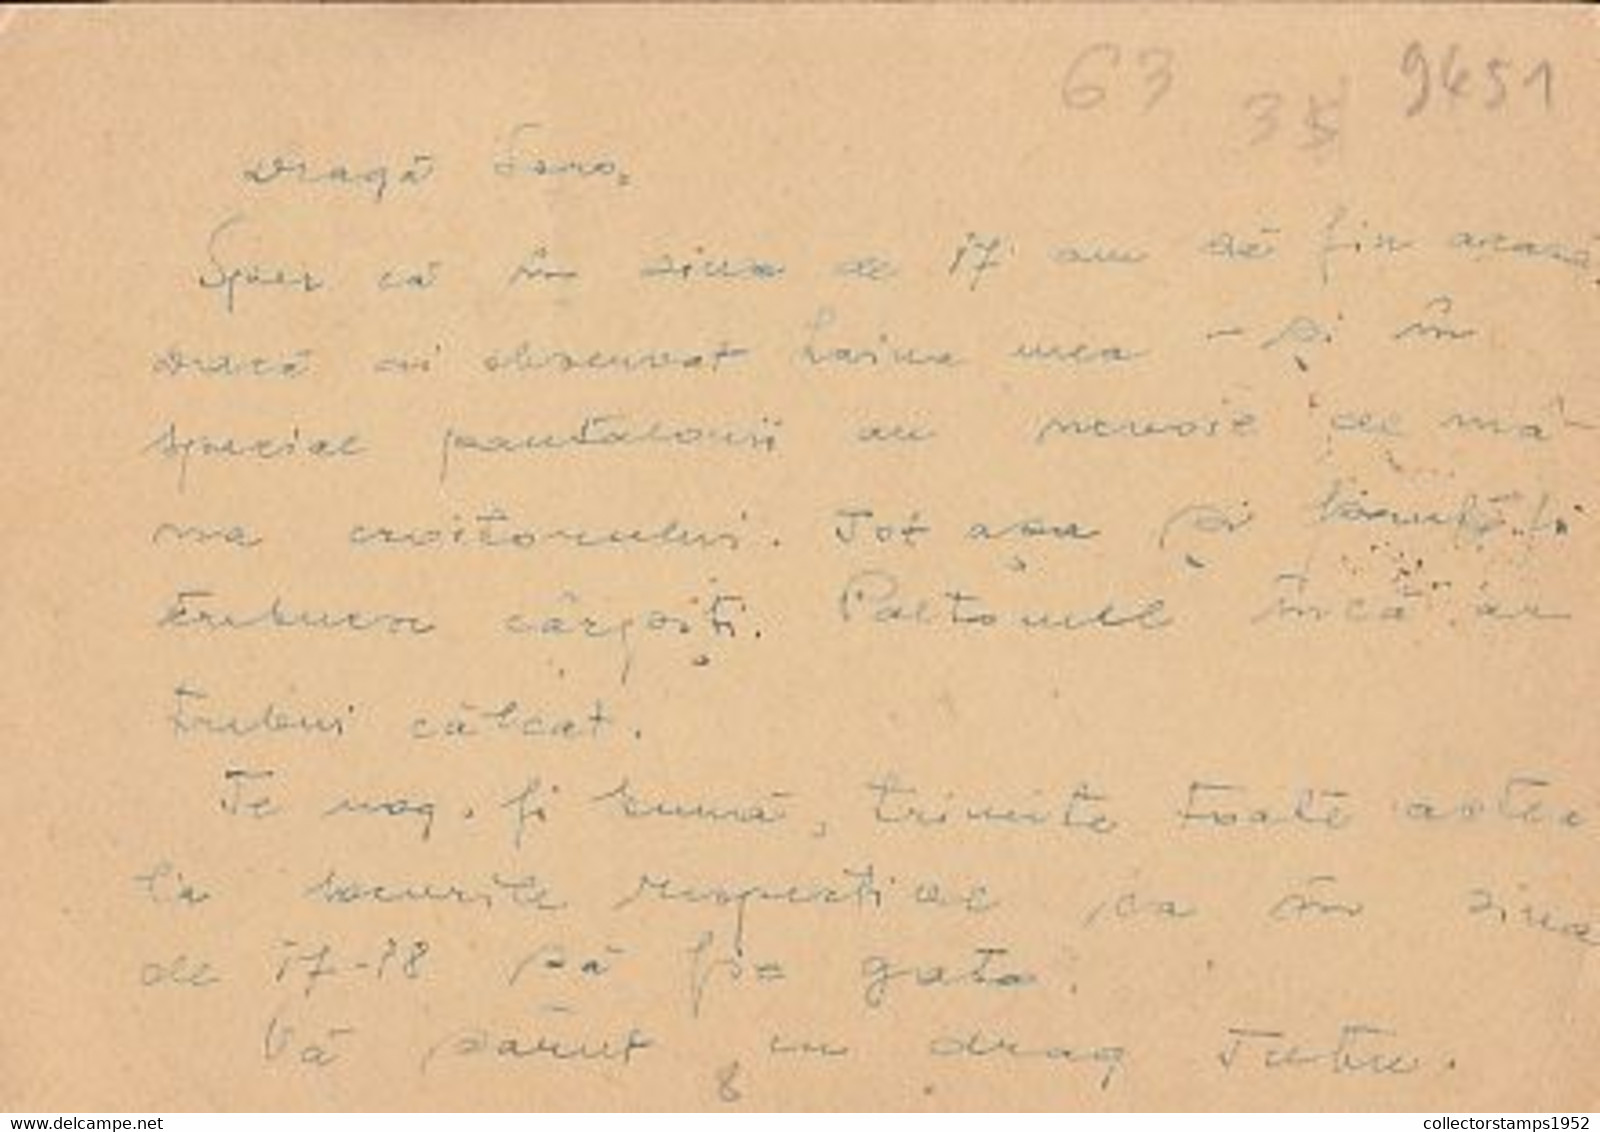 63
35
9451
Dragă
Sper că în ziua de 17 am să fiu acasă.
Dacă ai observat haina mea - și în
special pantalonii au nevoie de mâ-
na croitorului. Tot așa și
trebuesc cârpiți. Paltonul încă ar
trebui călcat.
Te rog, fi bună, trimite toate astea
la locurile respective ca în ziua
de 17-18 să fie gata.
Vă sărut cu drag Tutu.
8
www.delcampe.net
collectorstamps1952